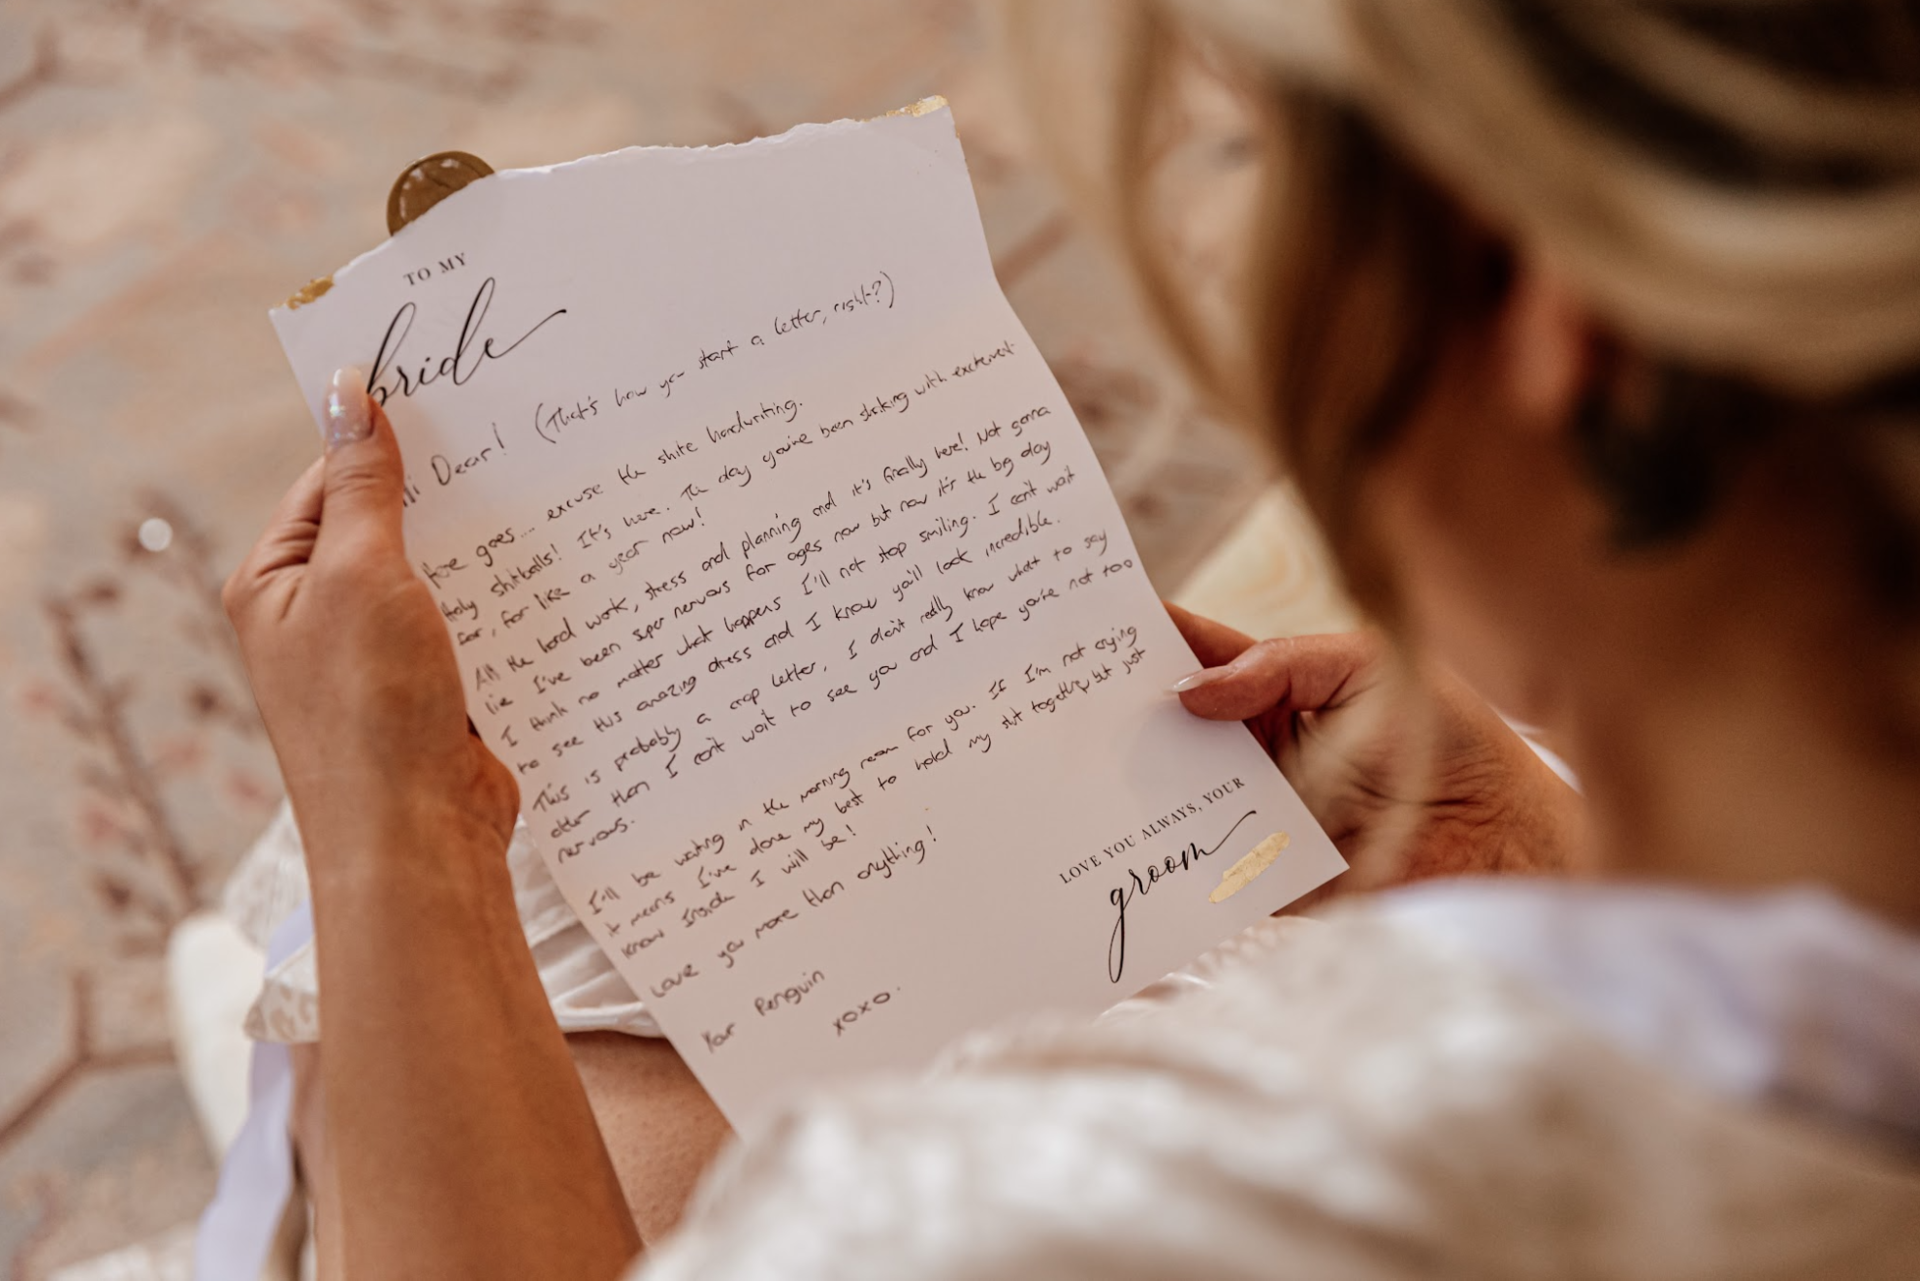 TO MY
bride
Hi Dear! (That's how you start a letter, right?)
Here goes... excuse the shite handwriting.
Holy shitballs! It's here. The day you've been shaking with excitement
for, for like a year now!
All the hard work, stress and planning and it's finally here! Not gonna
lie I've been super nervous for ages now but now it's the big day
I think no matter what happens I'll not stop smiling. I can't wait
to see this amazing dress and I know you'll look incredible.
This is probably a crap letter, I don't really know what to say
other than I can't wait to see you and I hope you're not too
nervous.
I'll be waiting in the morning room for you. If I'm not crying
it means I've done my best to hold my shit together but just
know Inside I will be!
Love you more than anything!
Your Penguin
xoxo.
LOVE YOU ALWAYS, YOUR
groom